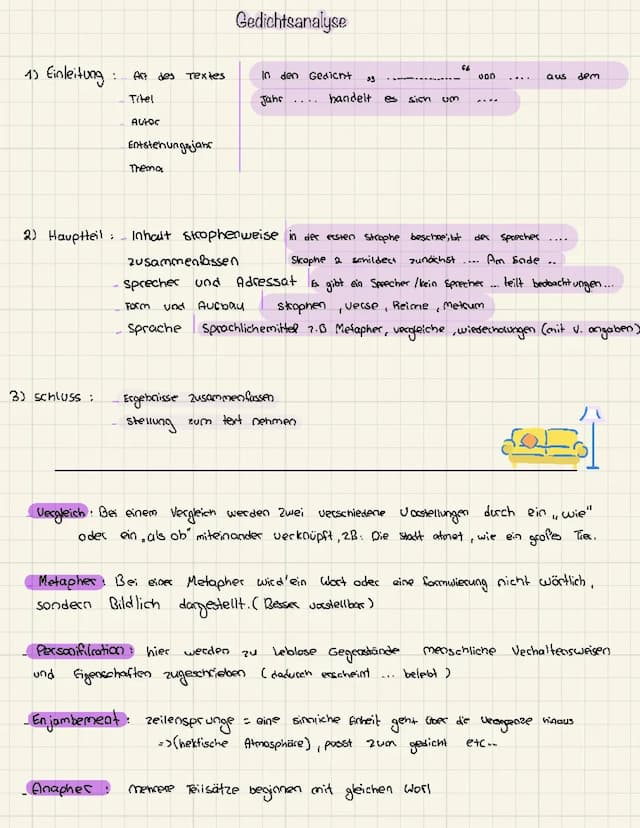 Gedichtsanalyse
1) Einleitung : Art des Textes In den Gedicht „ .............“ von .... aus dem
- Titel Jahr .... handelt es sich um ....
- Autor
- Entstehungsjahr
- Thema
2) Hauptteil : - Inhalt strophenweise in der ersten Strophe beschreibt der Sprecher ....
zusammenfassen Strophe 2 schildert zunächst .... Am Ende ..
- Sprecher und Adressat Es gibt ein Sprecher/kein Sprecher ... teilt beobachtungen...
- Form und Aufbau Strophen , Verse , Reime , Metrum
- Sprache Sprachlichemittel z.B Metapher, vergleiche ,wiederholungen (mit V. angaben)
3) Schluss : - Ergebnisse zusammenfassen
- Stellung zum text nehmen
Vergleich : Bei einem Vergleich werden zwei verschiedene Vorstellungen durch ein „wie"
oder ein „als ob" miteinander verknüpft, zB: Die Stadt atmet, wie ein großes Tier.
- Metapher : Bei einer Metapher wird ein Wort oder eine formulierung nicht wörtlich,
sondern Bildlich dargestellt. (Besser vorstellbar)
- Personifikation : hier werden zu Leblose Gegenstände menschliche Verhaltensweisen
und Eigenschaften zugeschrieben ( dadurch erscheint ... belebt )
- Enjambement : zeilensprunge = eine sinnliche Einheit geht über die Versgrenze hinaus
=> (hektische Atmosphäre) , passt zum gedicht etc..
- Anapher : mehrere Teilsätze beginnen mit gleichen Wort